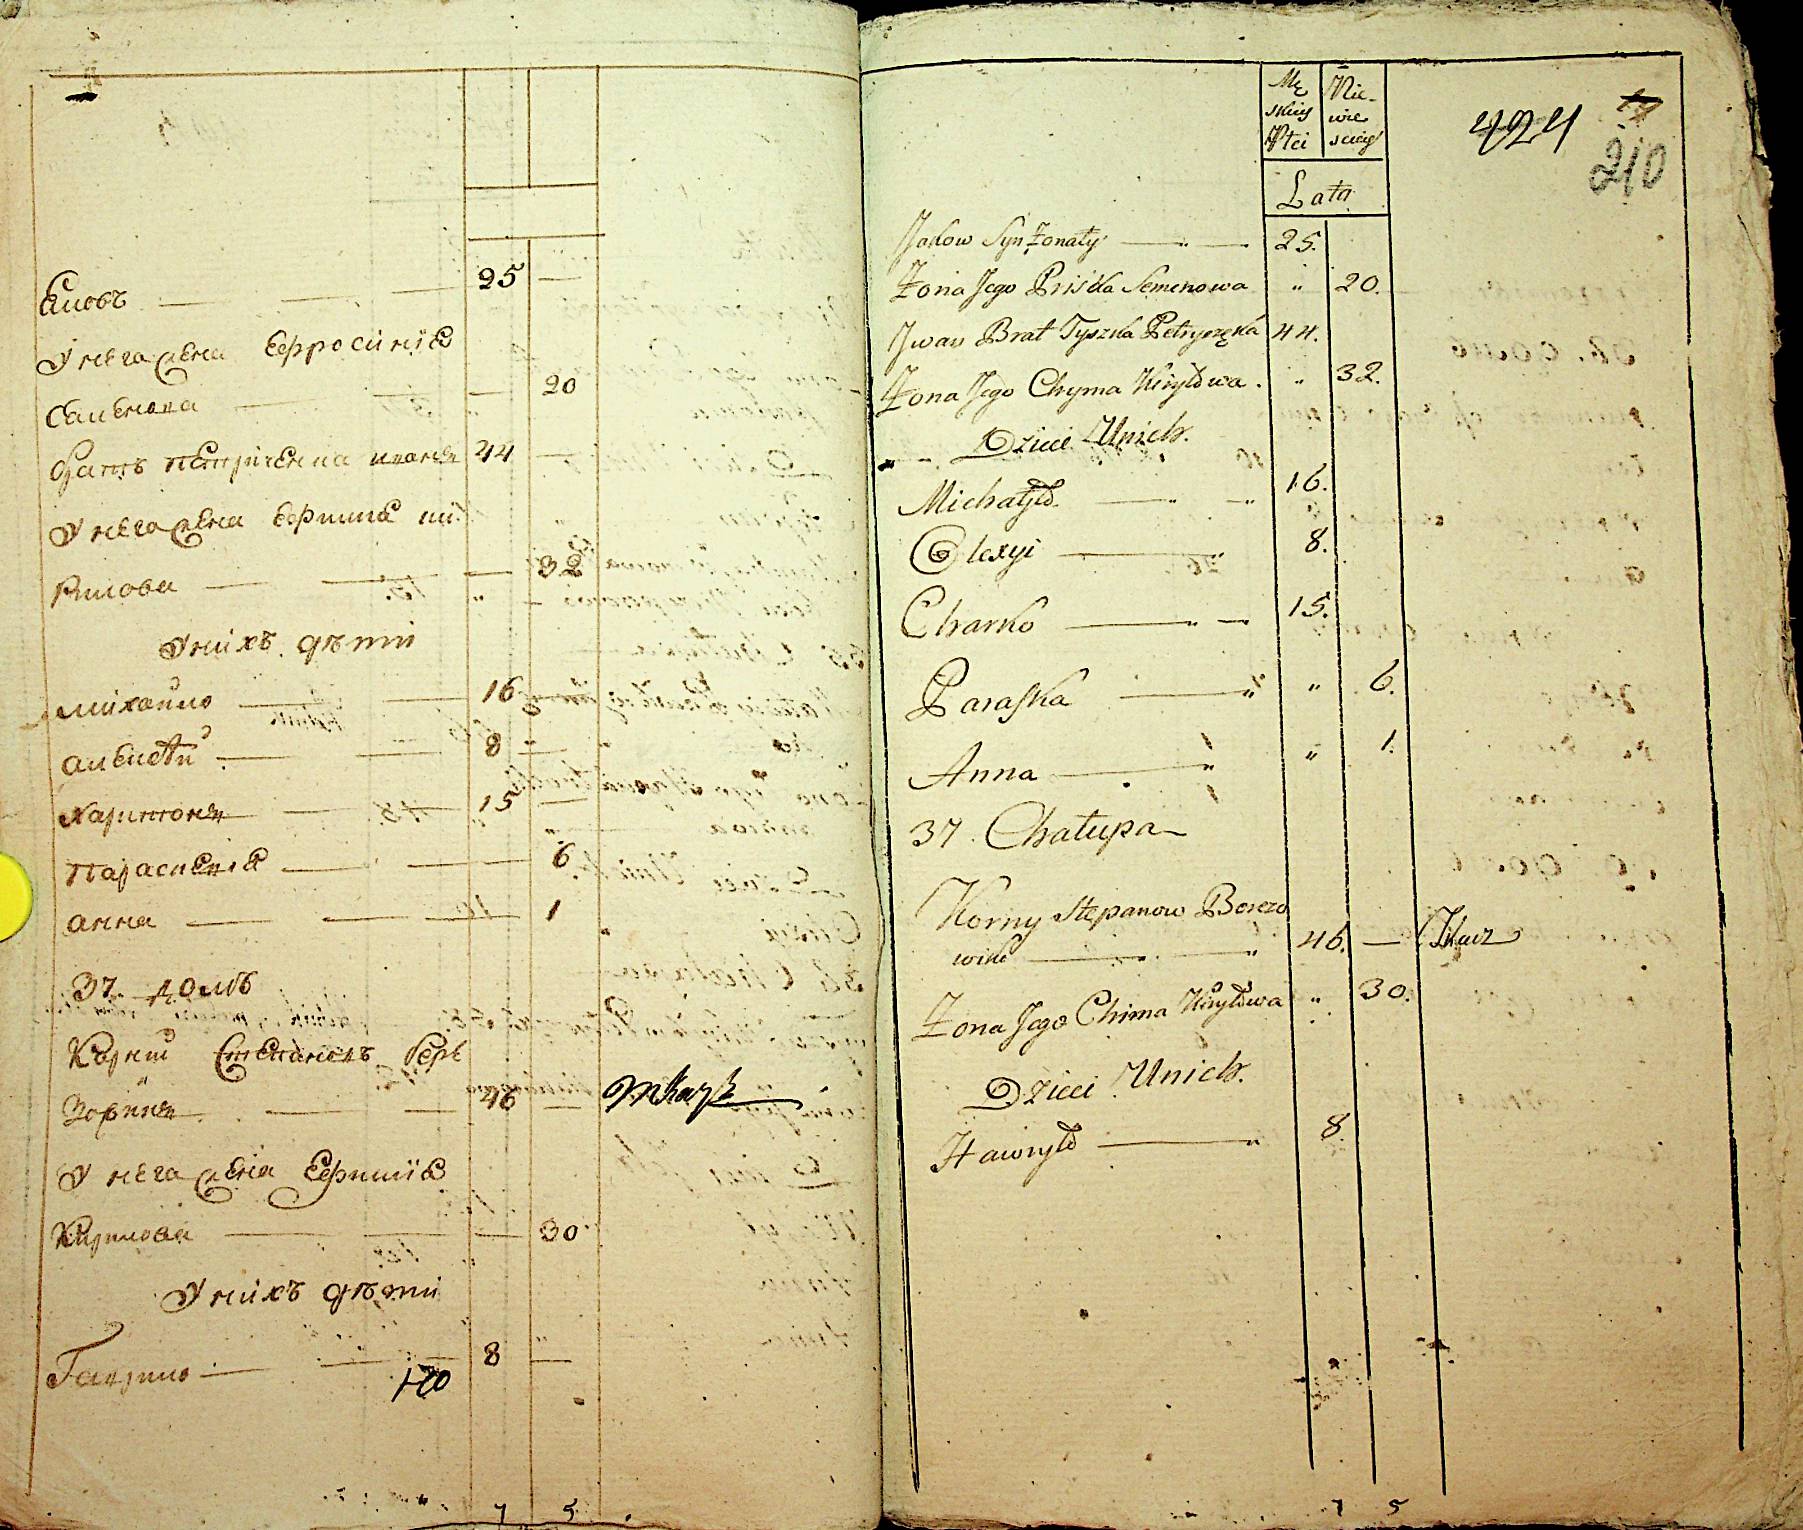 25 —
Яковъ —
У нега жена Ефросинія
Семенова — 20
Братъ Петричена иванъ 44 —
У нега жена Ефимия ки
рилова — 32
У нихъ дѣти
михайло — 16
алексѣй — 8 —
Харитонъ — 15 —
Параскевія — 6
анна — 1
37. домъ
Корнѣй Степановъ Бере
зовикъ — 46 — ткачъ
У нега жена Ефимія
Кирилова — 30
У нихъ дѣти
Гаврило — 8 —
120
7 5
Mę
skiey
Płci
Nie-
wie
sciey
Lata
424
210
Jakow Syn Żonaty — 25.
Żona Jego Priśka Semenowa " 20.
Jwan Brat Tyszka Petryczęka 44.
Żona Jego Chyma Kiryłowa. " 32.
Dzieci Unich.
Michayło — " 16.
Olexyi — " 8.
Charko — " — 15.
Paraska — " " 6.
Anna — " " 1.
37. Chałupa
Korny Stepanow Berezo
wik — " 46. — Tkacz
Żona Jego Chima Kiryłowa " 30.
Dzieci Unich.
Hawryło — " 8.
7 5